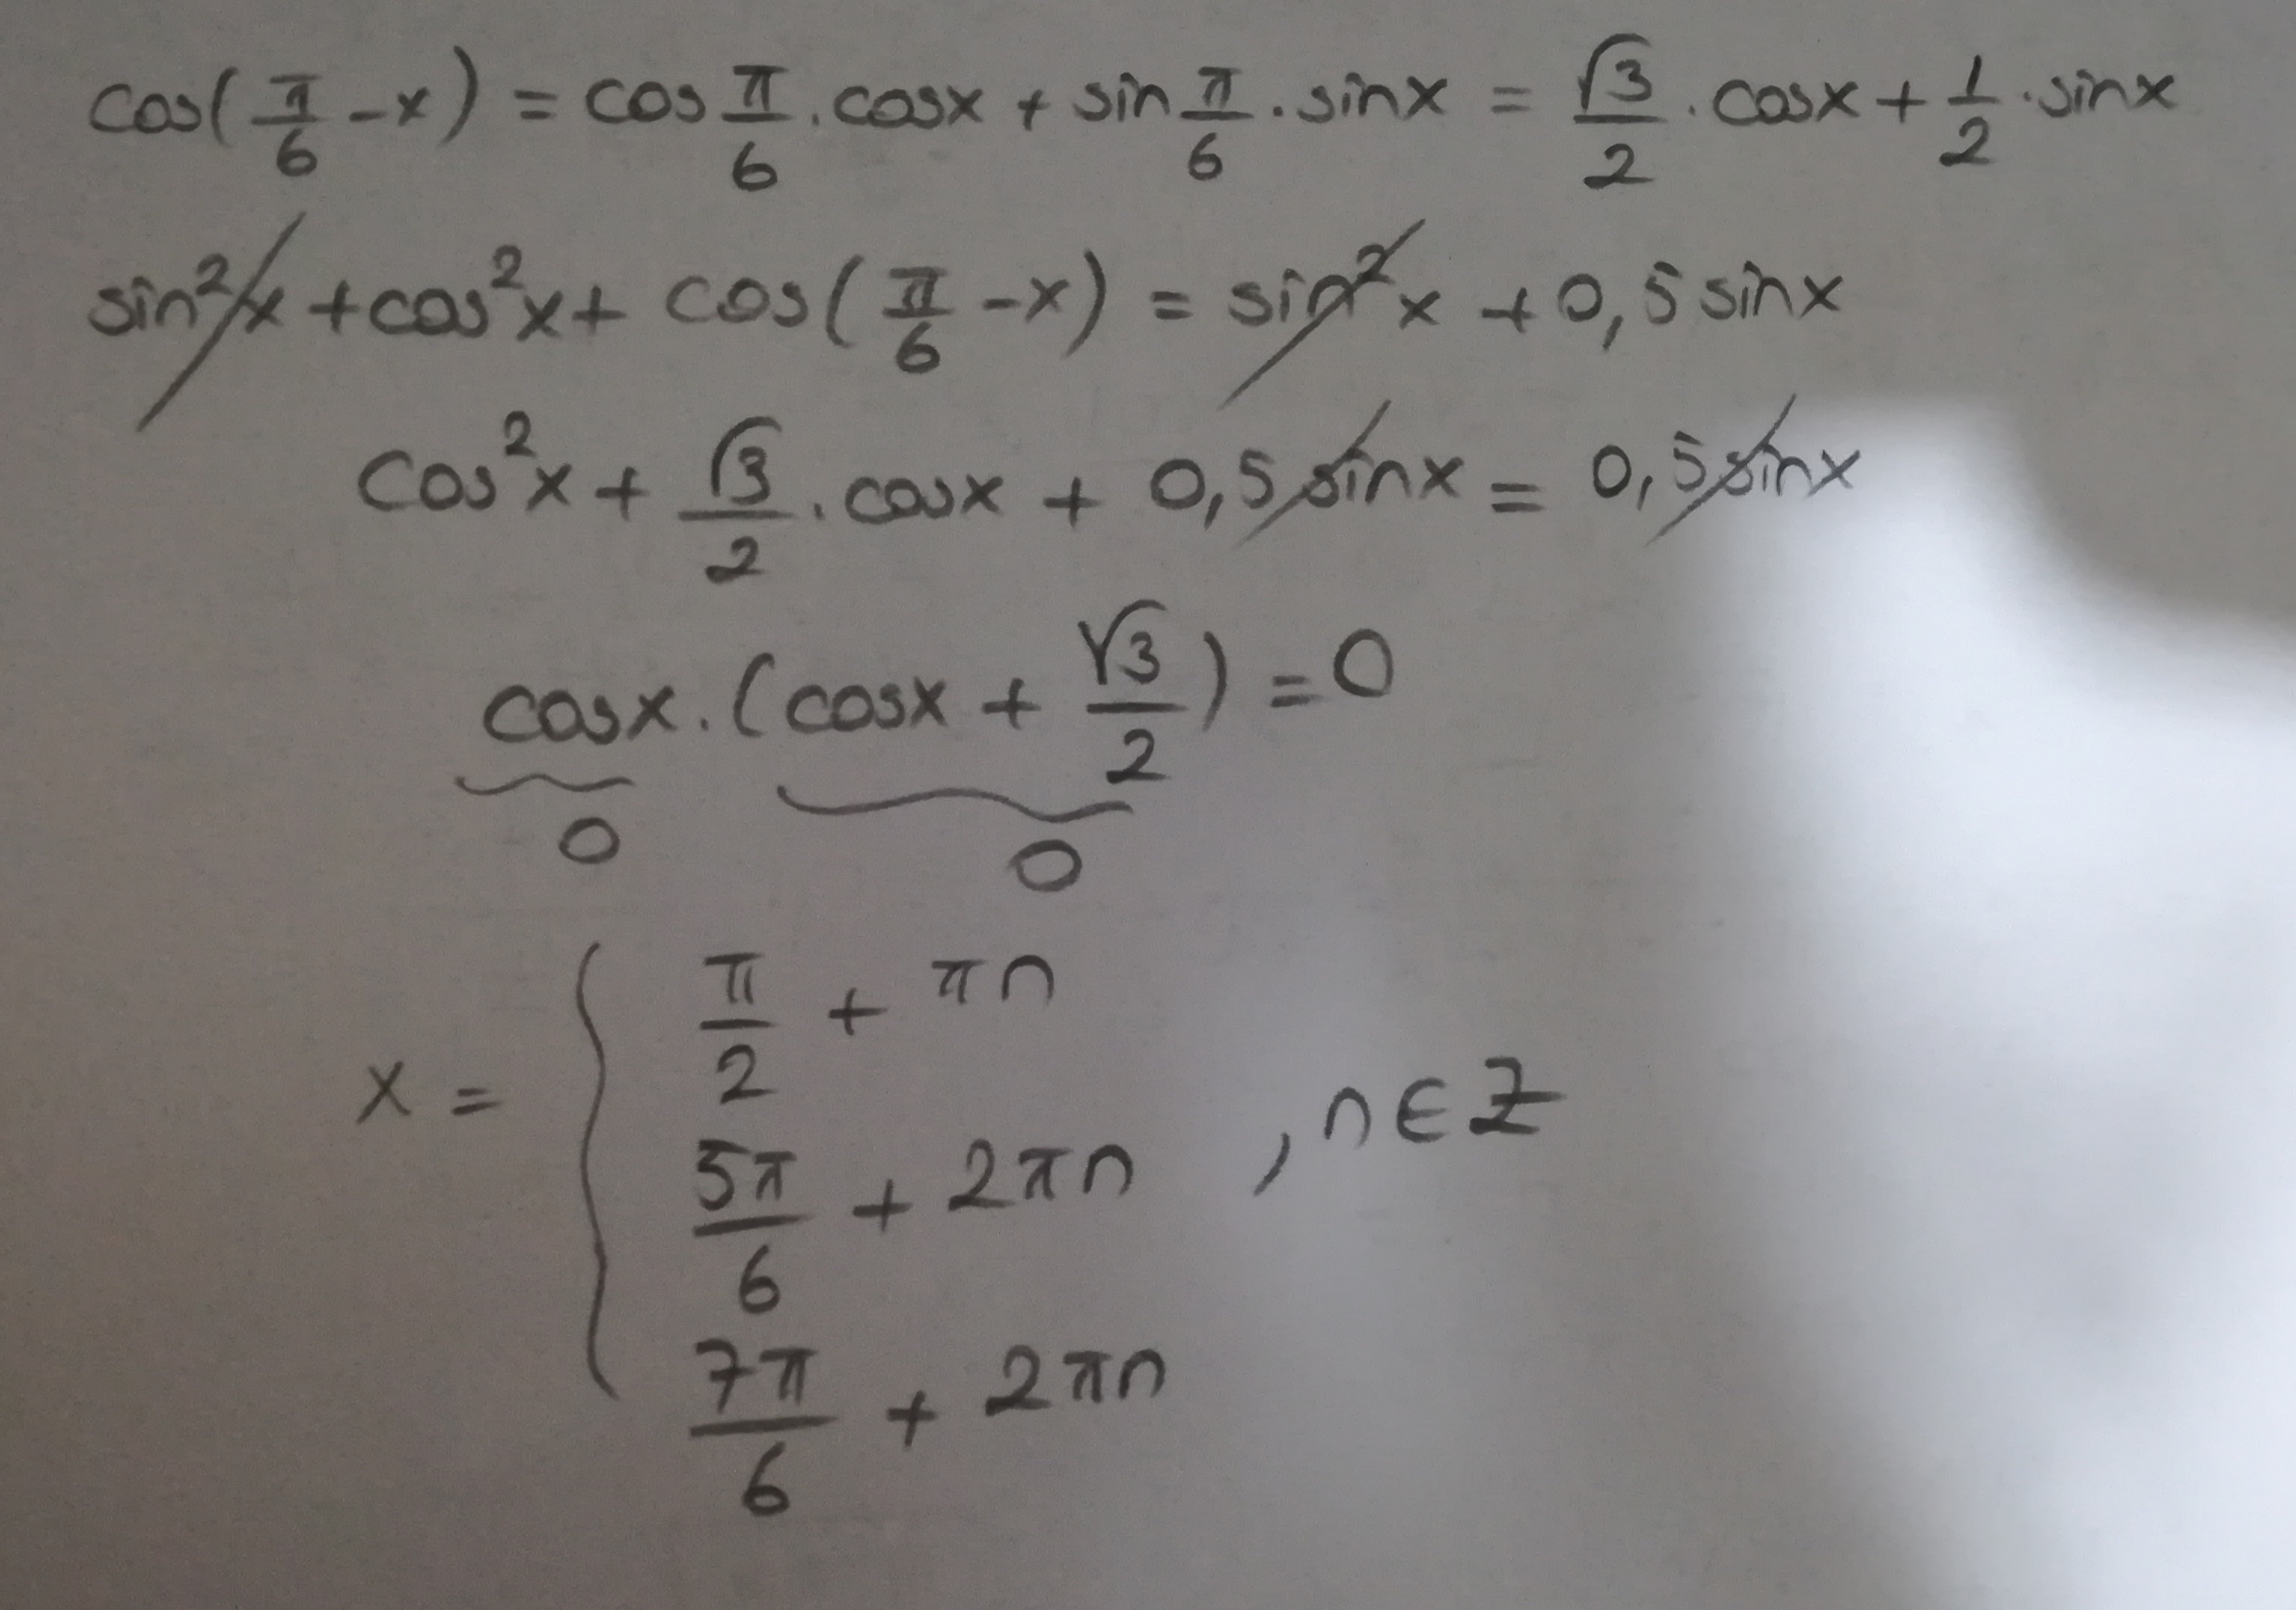 cos(π/6 - x) = cos π/6 . cosx + sin π/6 . sinx = √3/2 . cosx + 1/2 . sinx
sin²x + cos²x + cos(π/6 - x) = sin²x + 0,5 sinx
cos²x + √3/2 . cosx + 0,5 sinx = 0,5 sinx
cosx . (cosx + √3/2) = 0
0 0
x = { π/2 + πn
5π/6 + 2πn , n ∈ Z
7π/6 + 2πn